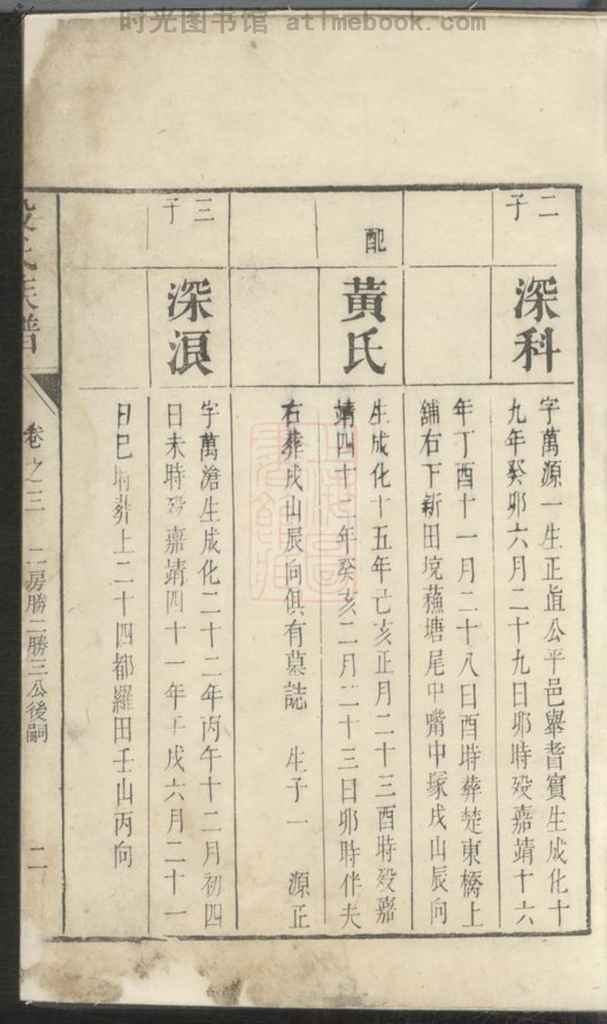 时光图书馆 atimebook.com
二子
深科
字萬源一生正直公平邑舉耆賓生成化十
九年癸卯六月二十九日卯時歿嘉靖十六
年丁酉十一月二十八日酉時葬楚東橋上
舖右下新田塆蘓塘尾中嘴中塚戌山辰向
配
黃氏
生成化十五年亡亥正月二十三酉時歿嘉
靖四十二年癸亥二月二十三日卯時伴夫
右葬戌山辰向俱有墓誌 生子一 源正
三子
深浪
字萬滄生成化二十二年丙午十二月初四
日未時歿嘉靖四十一年壬戌六月二十一
日巳時葬上二十四都羅田壬山丙向
氏族譜
卷之三 二房勝二勝三公後嗣 二